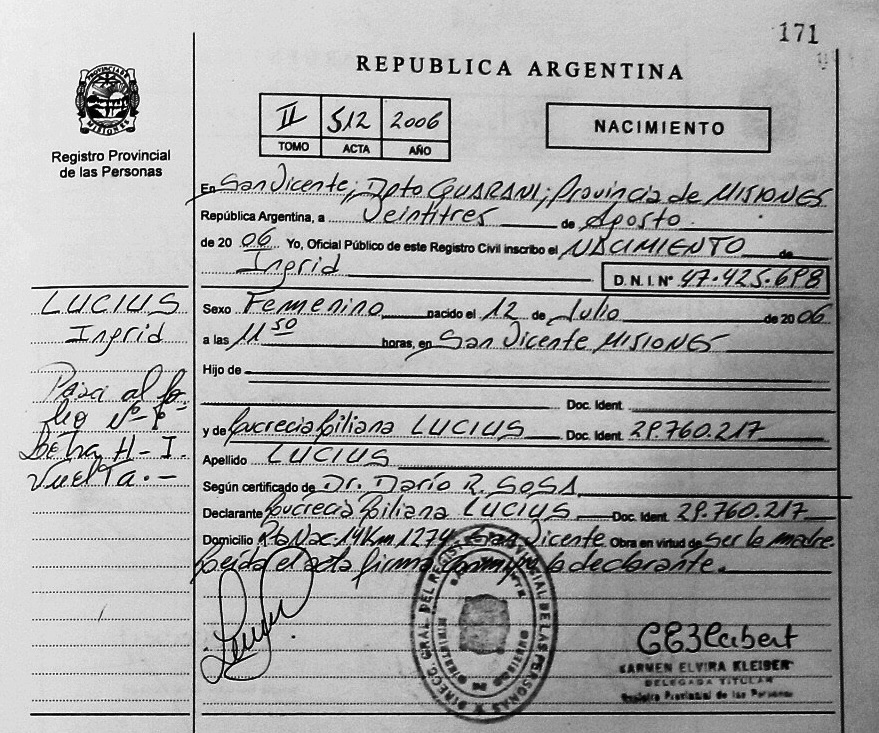 171
REPUBLICA ARGENTINA
PROVINCIA DE MISIONES
Registro Provincial
de las Personas
II 512 2006
TOMO ACTA AÑO
NACIMIENTO
En San Vicente; Dpto GUARANI; Provincia de MISIONES
República Argentina, a Veintitres de Agosto
de 20 06 Yo, Oficial Público de este Registro Civil inscribo el NACIMIENTO de
Ingrid D. N. I. Nº 47.425.698
LUCIUS
Ingrid
Pasa al fo
lio Nº
Letra H-I.
Vuelta.-
Sexo Femenino nacido el 12 de Julio de 20 06
a las 11 50 horas, en San Vicente MISIONES
Hijo de
Doc. Ident.
y de Lucrecia Liliana LUCIUS Doc. Ident. 29.760.217
Apellido LUCIUS
Según certificado de Dr. Darío R. SOSA
Declarante Lucrecia Liliana LUCIUS Doc. Ident. 29.760.217
Domicilio Rta Nac. 14 Km 1274 San Vicente Obra en virtud de ser la madre
Leída el acta firma conmigo la declarante.
DIRECC. GRAL. DEL REGISTRO PROVINCIAL DE LAS PERSONAS
KARMEN ELVIRA KLEIBER
DELEGADA TITULAR
Registro Provincial de las Personas